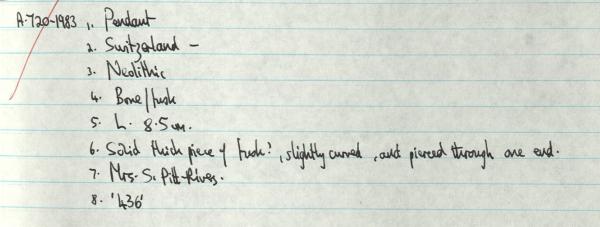 A·720-1983 1. Pendant
2. Switzerland –
3. Neolithic
4. Bone/tusk
5. L. 8.5 cm.
6. Solid thick piece of tusk?, slightly curved, and pierced through one end.
7. Mrs. S. Pitt-Rivers.
8. '436'